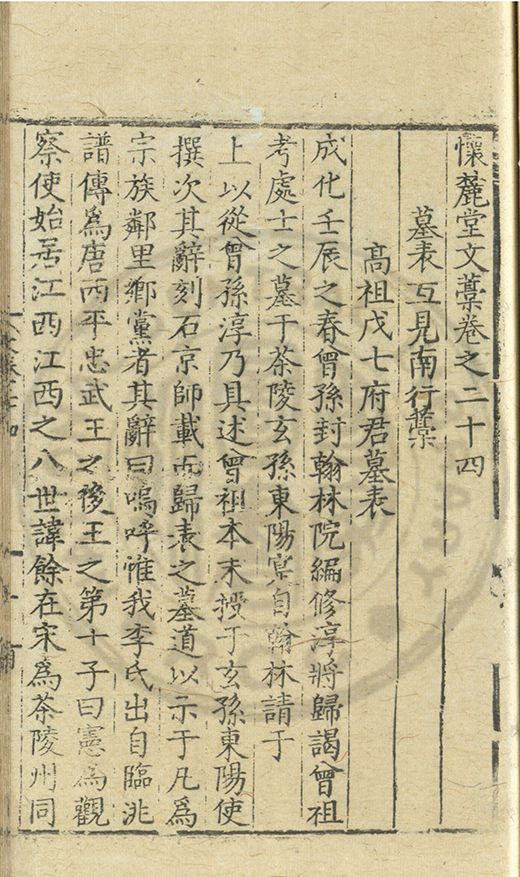 懷麓堂文藁卷之二十四
墓表互見南行藁
高祖戊七府君墓表
成化壬辰之春曾孫封翰林院編修淳將歸謁曾祖
考處士之墓于茶陵玄孫東陽寔自翰林請于
上以從曾孫淳乃具述曾祖本末授于玄孫東陽使
撰次其辭刻石京師載而歸表之墓道以示于凡為
宗族鄰里鄉黨者其辭曰嗚呼惟我李氏出自臨洮
譜傳為唐西平忠武王之後王之第十子曰憲為觀
察使始居江西江西之八世諱餘在宋為茶陵州同